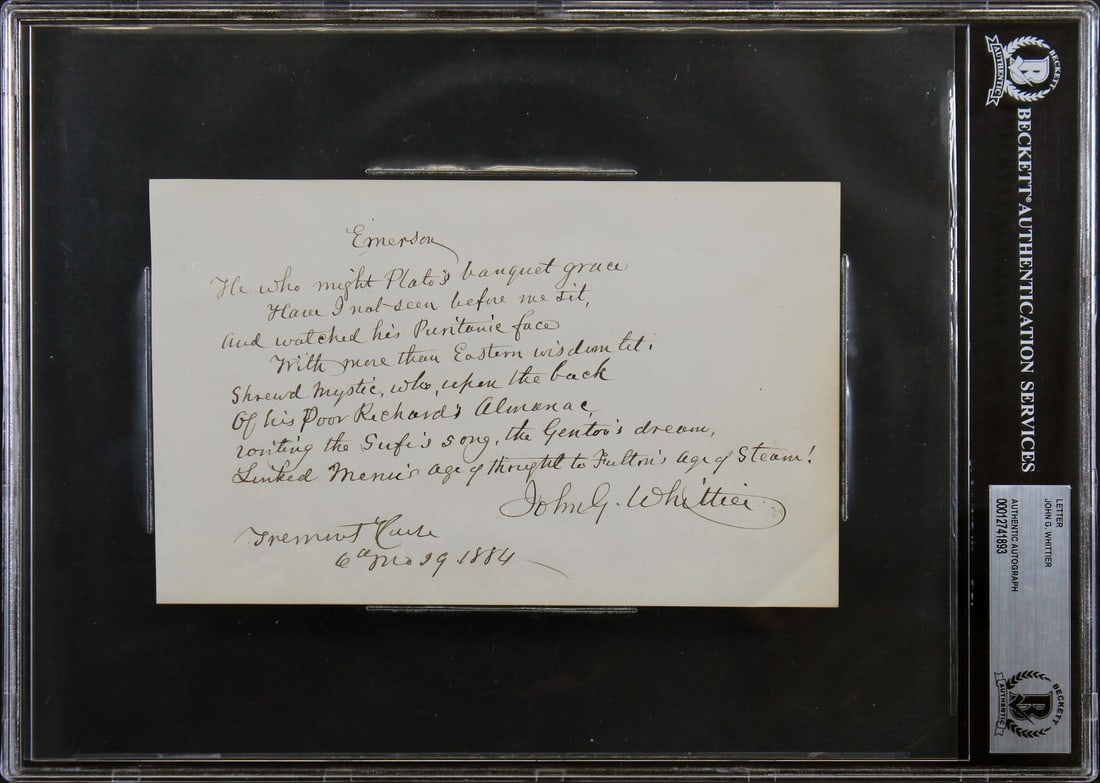 Emerson
He who might Plato's banquet grace
Have I not seen before me sit,
And watched his Puritanic face
With more than Eastern wisdom lit.
Shrewd Mystic, who, upon the back
Of his Poor Richard's Almanac,
writing the Sufi's song, the Gentoo's dream,
Linked Menu's age of thought to Fulton's age of Steam!
John G. Whittier
Tremont House
6th mo 29. 1884
BECKETT
AUTHENTIC
BECKETT® AUTHENTICATION SERVICES
LETTER
JOHN G. WHITTIER
AUTHENTIC AUTOGRAPH
00012741893
BECKETT
AUTHENTIC